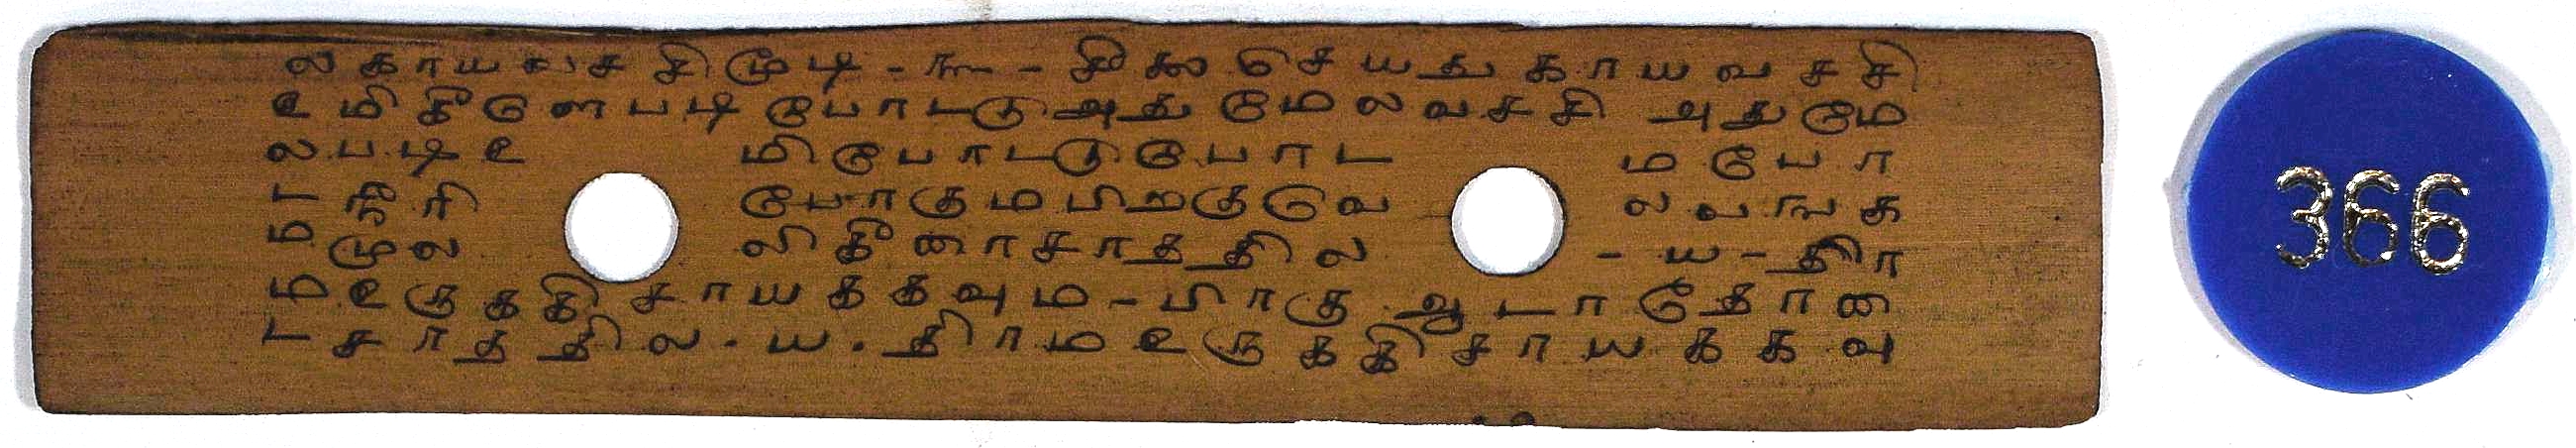 லகாயவச சிமூடி - ௩ - சீலை செயது காயவசசி
உமிகீளெபடி போடடு அது மேலவசசி அதுமே
லபடிஉ மிபோடடுபோட மபோ
டா நீரி போகுமபிறகுவெ லவஙக
ம முல லிகீனாசாறததில - ய - திரா
ம உருககி சாயககவும - பிராகு ஆடாதோடை
சாறததில - ய - திராம உருககி சாயககவு
366